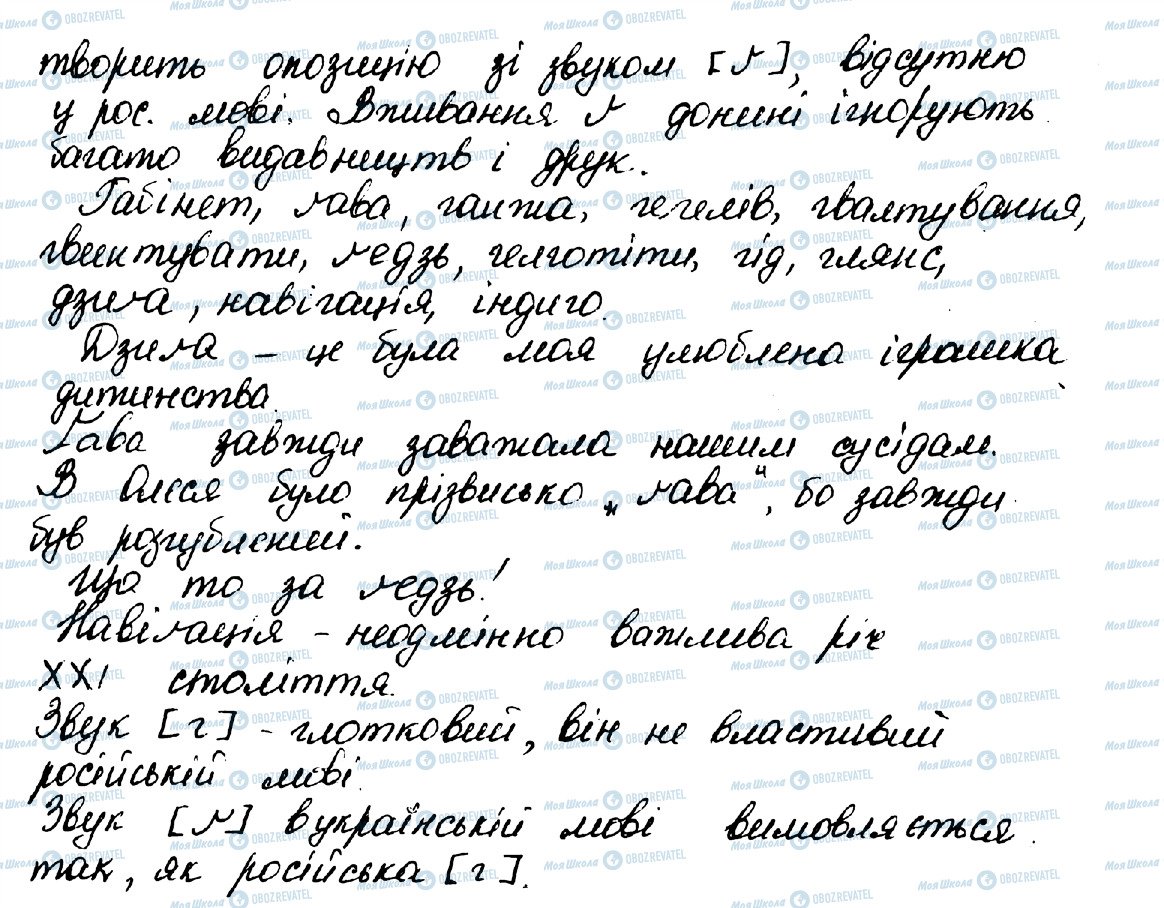 творить опозицію зі звуком [ґ], відсутню
у рос. мові. Вживання ґ донині ігнорують
багато видавництв і друк.
Габінет, ґава, ганжа, гегелів, гвалтування,
гвинтувати, ґедзь, гелготіти, гід, глянс,
дзиґа, навігація, індиго.
Дзиґа – це була моя улюблена іграшка
дитинства.
Ґава завжди заважала нашим сусідам.
В Олєся було прізвисько „ґава“, бо завжди
був розгублений.
Що то за ґедзь!
Навіґація – неодмінно важлива річ
XXI століття.
Звук [г] - глотковий, він не властивий
російській мові.
Звук [ґ] в українській мові вимовляється
так, як російська [г].